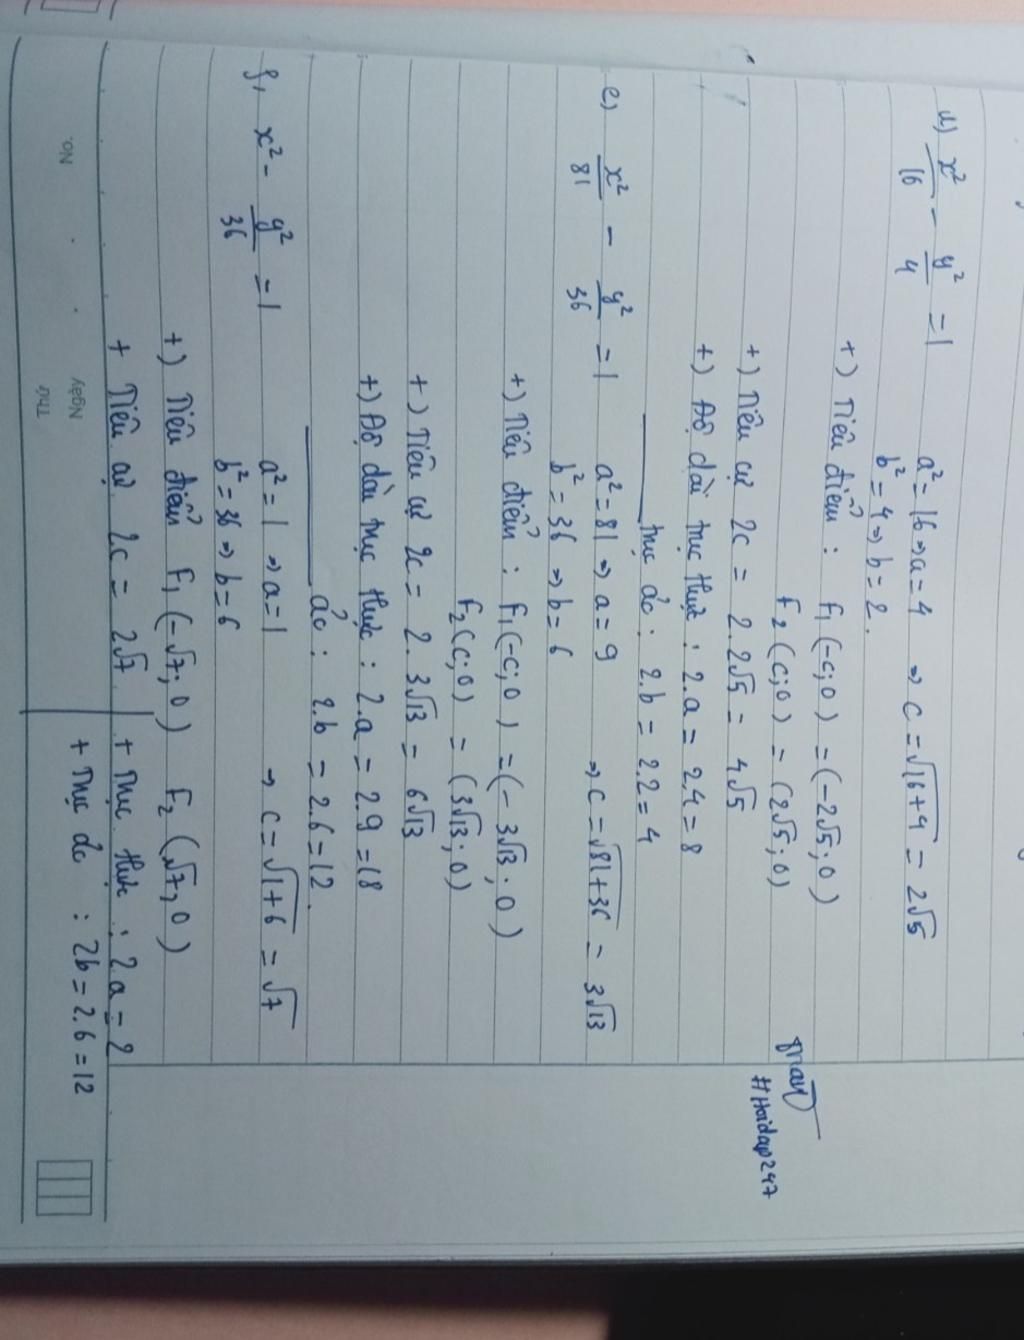 d) x²/16 - y²/4 = 1
a² = 16 => a = 4 => c = √16+4 = 2√5
b² = 4 => b = 2.
+) Tiêu điểm : F₁ (-c; 0) = (-2√5; 0)
F₂ (c; 0) = (2√5; 0)
+) Tiêu cự 2c = 2.2√5 = 4√5
+) Độ dài trục thực : 2.a = 2.4 = 8
trục ảo : 2.b = 2.2 = 4
e) x²/81 - y²/36 = 1
a² = 81 => a = 9 => c = √81+36 = 3√13
b² = 36 => b = 6
+) Tiêu điểm : F₁ (-c; 0) = (-3√13; 0)
F₂ (c; 0) = (3√13; 0)
+) Tiêu cự 2c = 2. 3√13 = 6√13
+) Độ dài trục thực : 2.a = 2.9 = 18
ảo : 2.b = 2.6 = 12.
f, x² - y²/36 = 1
a² = 1 => a = 1 => c = √1+6 = √7
b² = 36 => b = 6
+) Tiêu điểm F₁ (-√7; 0) F₂ (√7; 0)
+ Tiêu cự 2c = 2√7 + Trục thực : 2.a = 2
+ Trục ảo : 2b = 2.6 = 12
#Hoidap247
No.
Thứ
Ngày